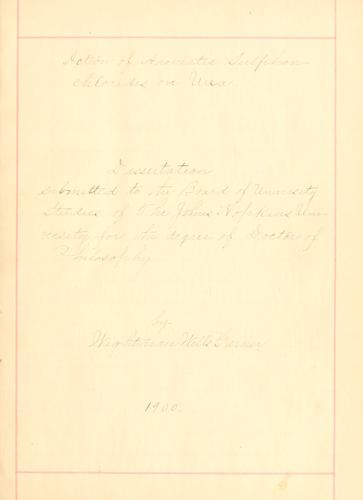 Action of Aromatic Sulphon
chlorides on Urea
Dissertation
submitted to the Board of University
Studies of The Johns Hopkins Uni-
versity for the degree of Doctor of
Philosophy
by
Wightman Wells Garner
1900.